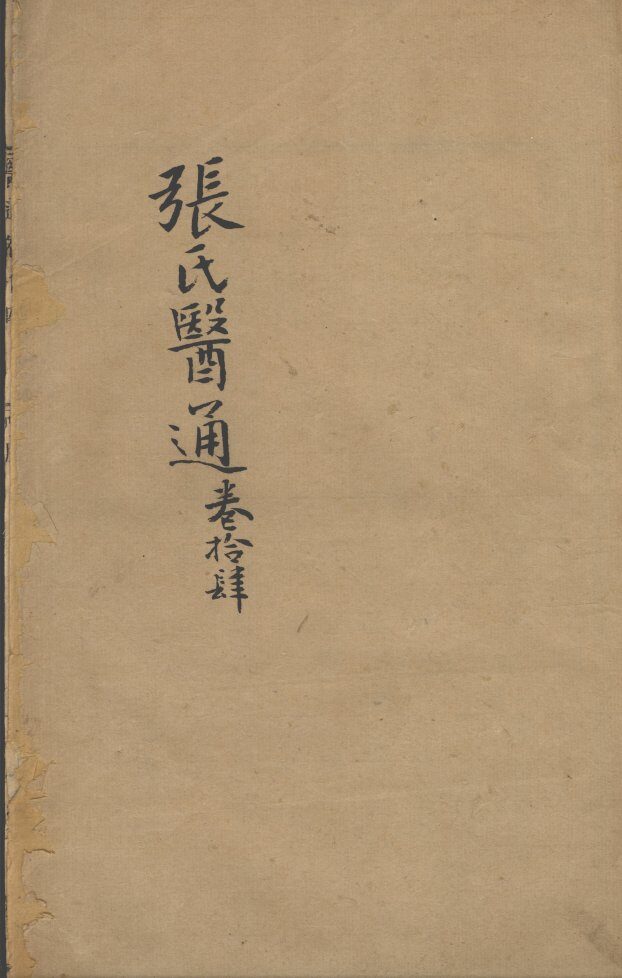 張氏醫通卷拾肆